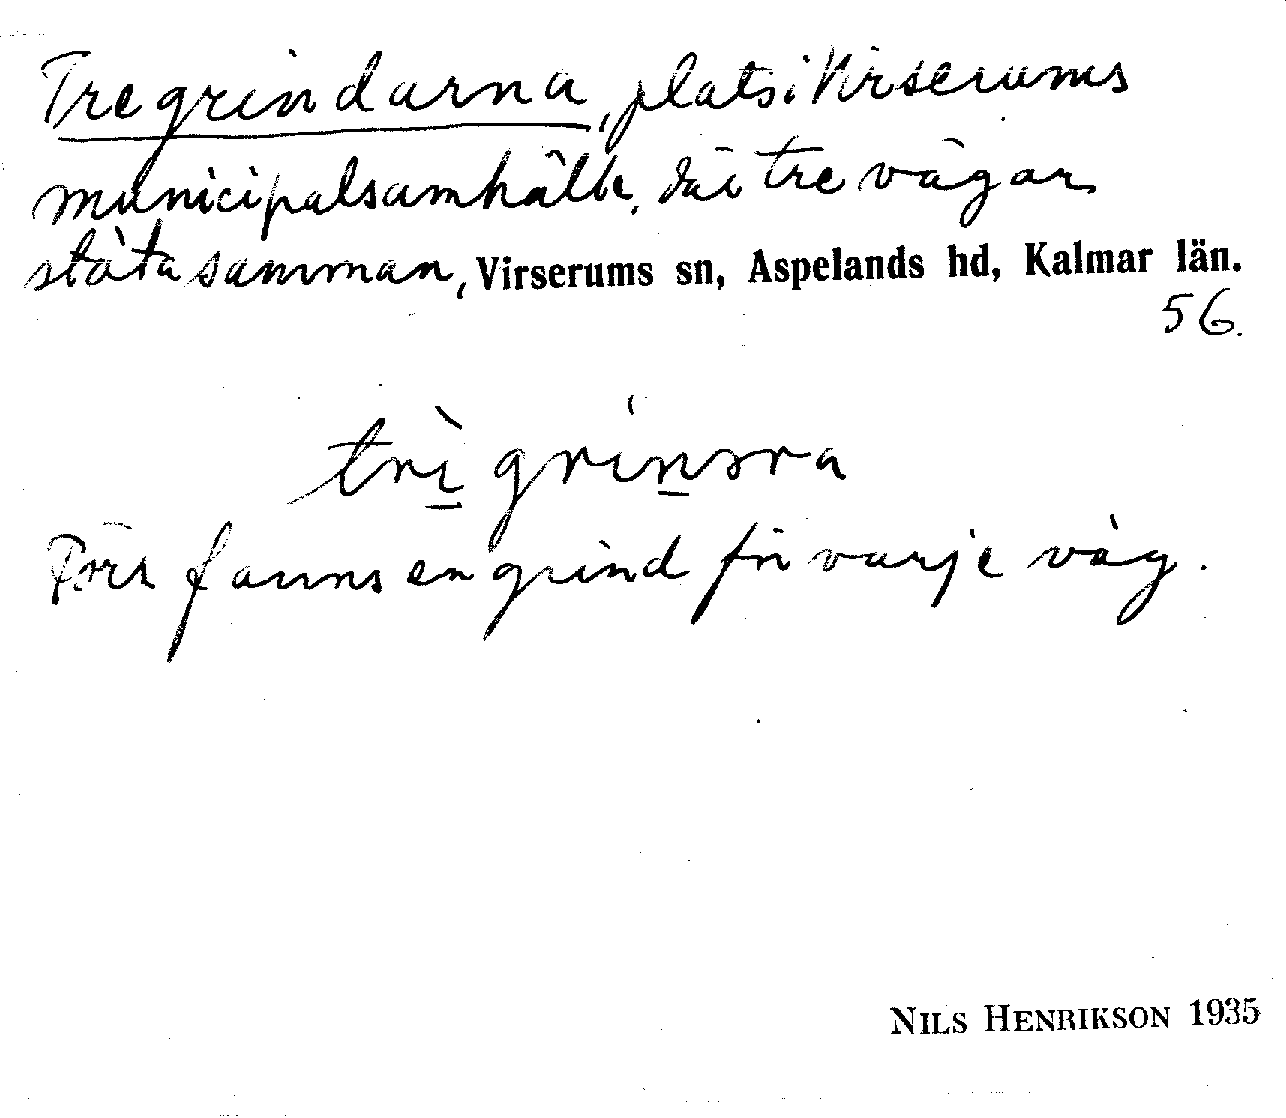 Tregrindarna, plats i Virserums
municipalsamhälle, där tre vägar
stöta samman, Virserums sn, Aspelands hd, Kalmar län.
56.
trì grinsra
Förr fanns en grind för varje väg.
NILS HENRIKSON 1935